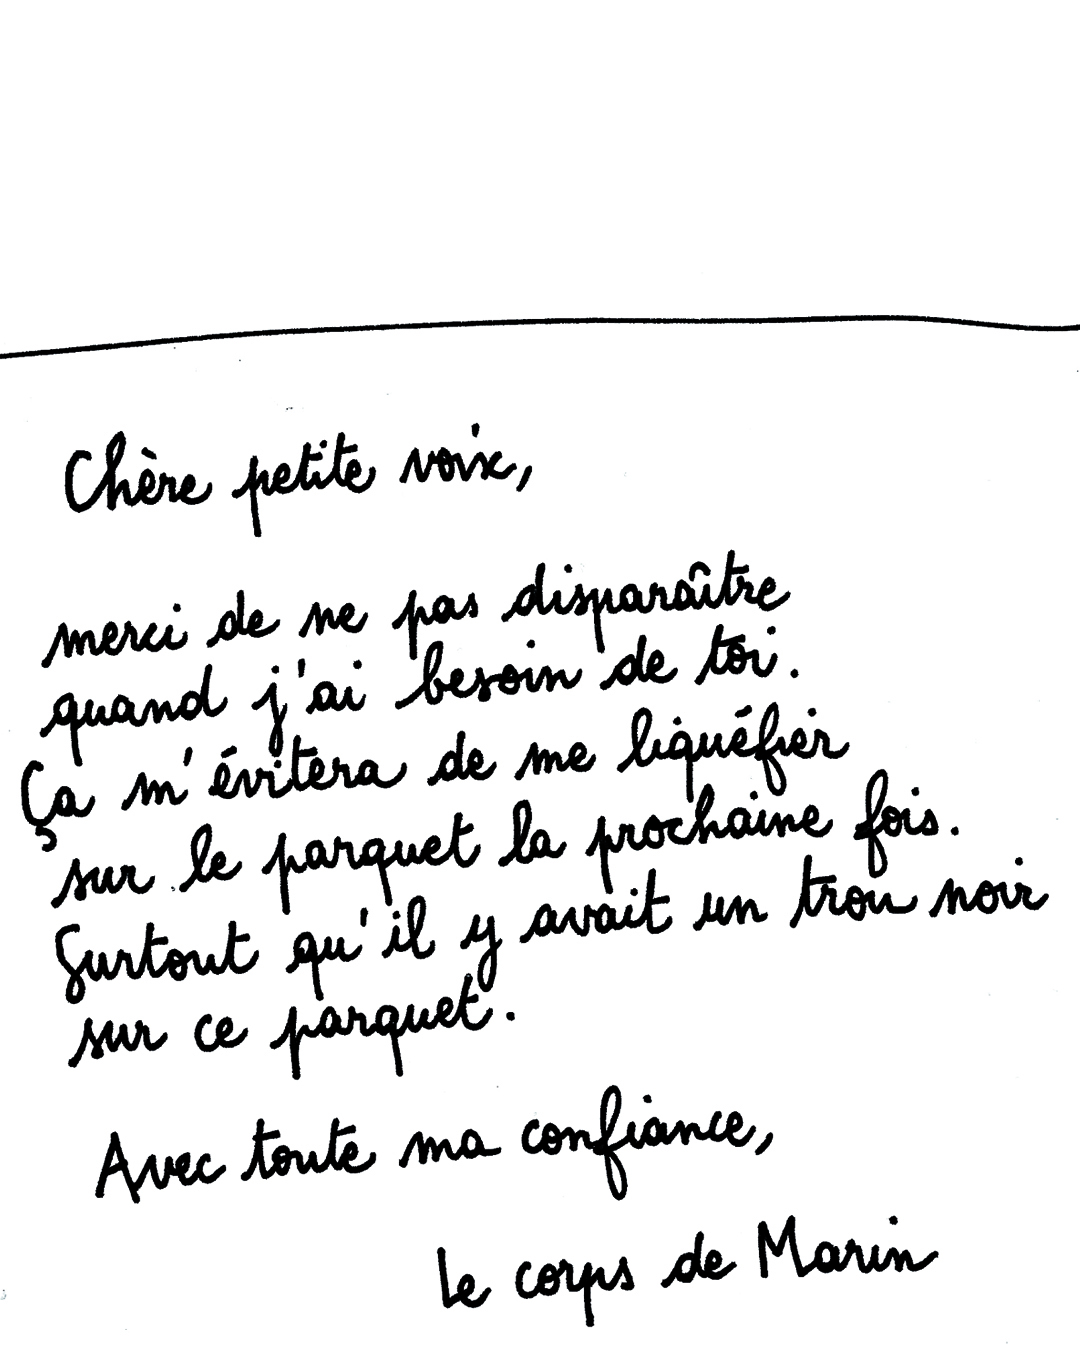 Chère petite voix,
merci de ne pas disparaître
quand j'ai besoin de toi.
Ça m'évitera de me liquéfier
sur le parquet la prochaine fois.
Surtout qu'il y avait un trou noir
sur ce parquet.
Avec toute ma confiance,
le corps de Marin